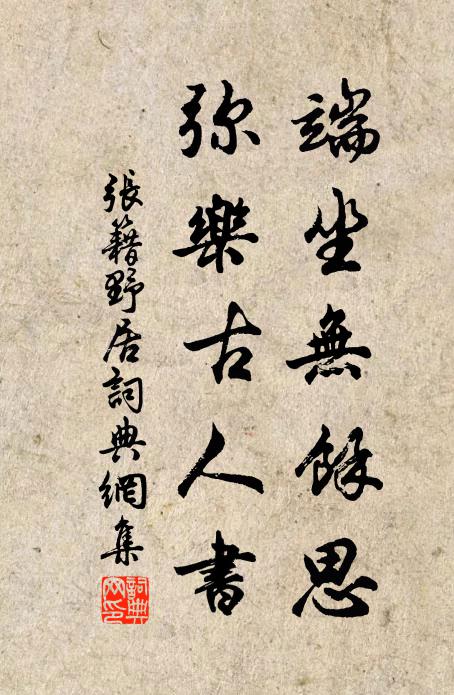 端坐無餘思
弥樂古人書
張籍野居詞典網集
詞典
网印